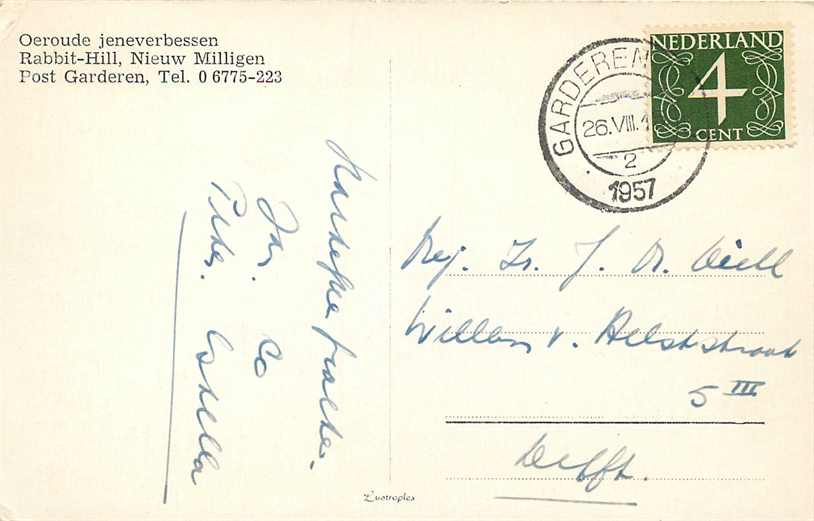 Oeroude jeneverbessen
Rabbit-Hill, Nieuw Milligen
Post Garderen, Tel. 0 6775-223
NEDERLAND
4
CENT
GARDEREN
26.VIII.1
2
1957
Hartelijke groeten.
Co
Mej. J.
Willem v. Aelststraat
5 III
Delft.